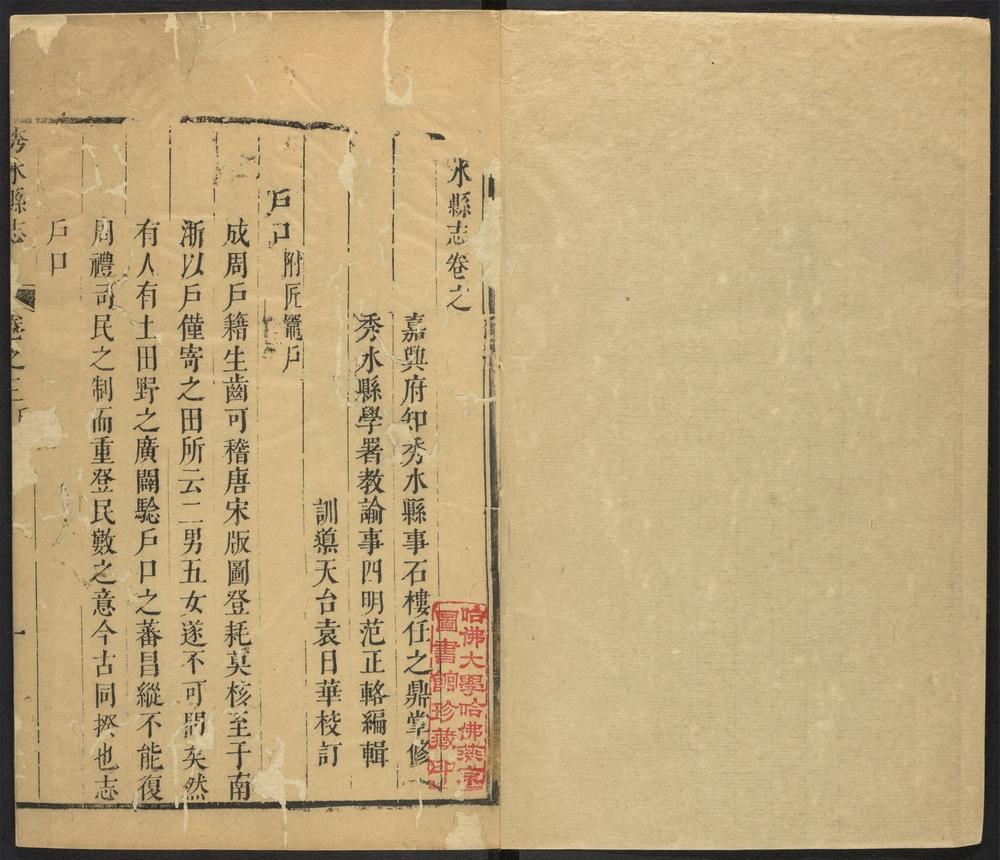 水縣志卷之
嘉興府知秀水縣事石樓任之鼎掌修
秀水縣學署教諭事四明范正輅編輯
訓導天台袁日華校訂
戶口附匠竈戶
成周戶籍生齒可稽唐宋版圖登耗莫核至于南
浙以戶僅寄之田所云二男五女遂不可問矣然
有人有土田野之廣闢騐戶口之蕃昌縱不能復
周禮司民之制而重登民數之意今古同揆也志
戶口
秀水縣志 卷之三 一
哈佛大學哈佛燕京
圖書館珍藏印